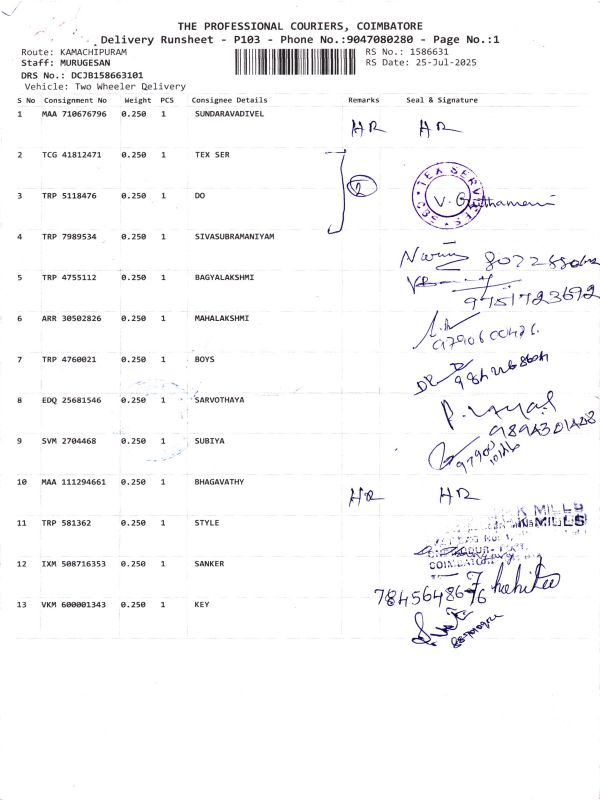 THE PROFESSIONAL COURIERS, COIMBATORE
Delivery Runsheet - P103 - Phone No.:9047080280 - Page No.:1
Route: KAMACHIPURAM RS No.: 1586631
Staff: MURUGESAN RS Date: 25-Jul-2025
DRS No.: DCJB158663101
Vehicle: Two Wheeler Delivery
S No Consignment No Weight PCS Consignee Details Remarks Seal & Signature
1 MAA 710676796 0.250 1 SUNDARAVADIVEL
HR HR
2 TCG 41812471 0.250 1 TEX SER
2
TEX SERV
3 TRP 5118476 0.250 1 DO
4 TRP 7989534 0.250 1 SIVASUBRAMANIYAM
5 TRP 4755112 0.250 1 BAGYALAKSHMI
9751723692
6 ARR 30502826 0.250 1 MAHALAKSHMI
7 TRP 4760021 0.250 1 BOYS
8 EDQ 25681546 0.250 1 SARVOTHAYA
9 SVM 2704468 0.250 1 SUBIYA
10 MAA 111294661 0.250 1 BHAGAVATHY
HR HR
MILLS
MILLS
11 TRP 581362 0.250 1 STYLE
12 IXM 508716353 0.250 1 SANKER
13 VKM 600001343 0.250 1 KEY